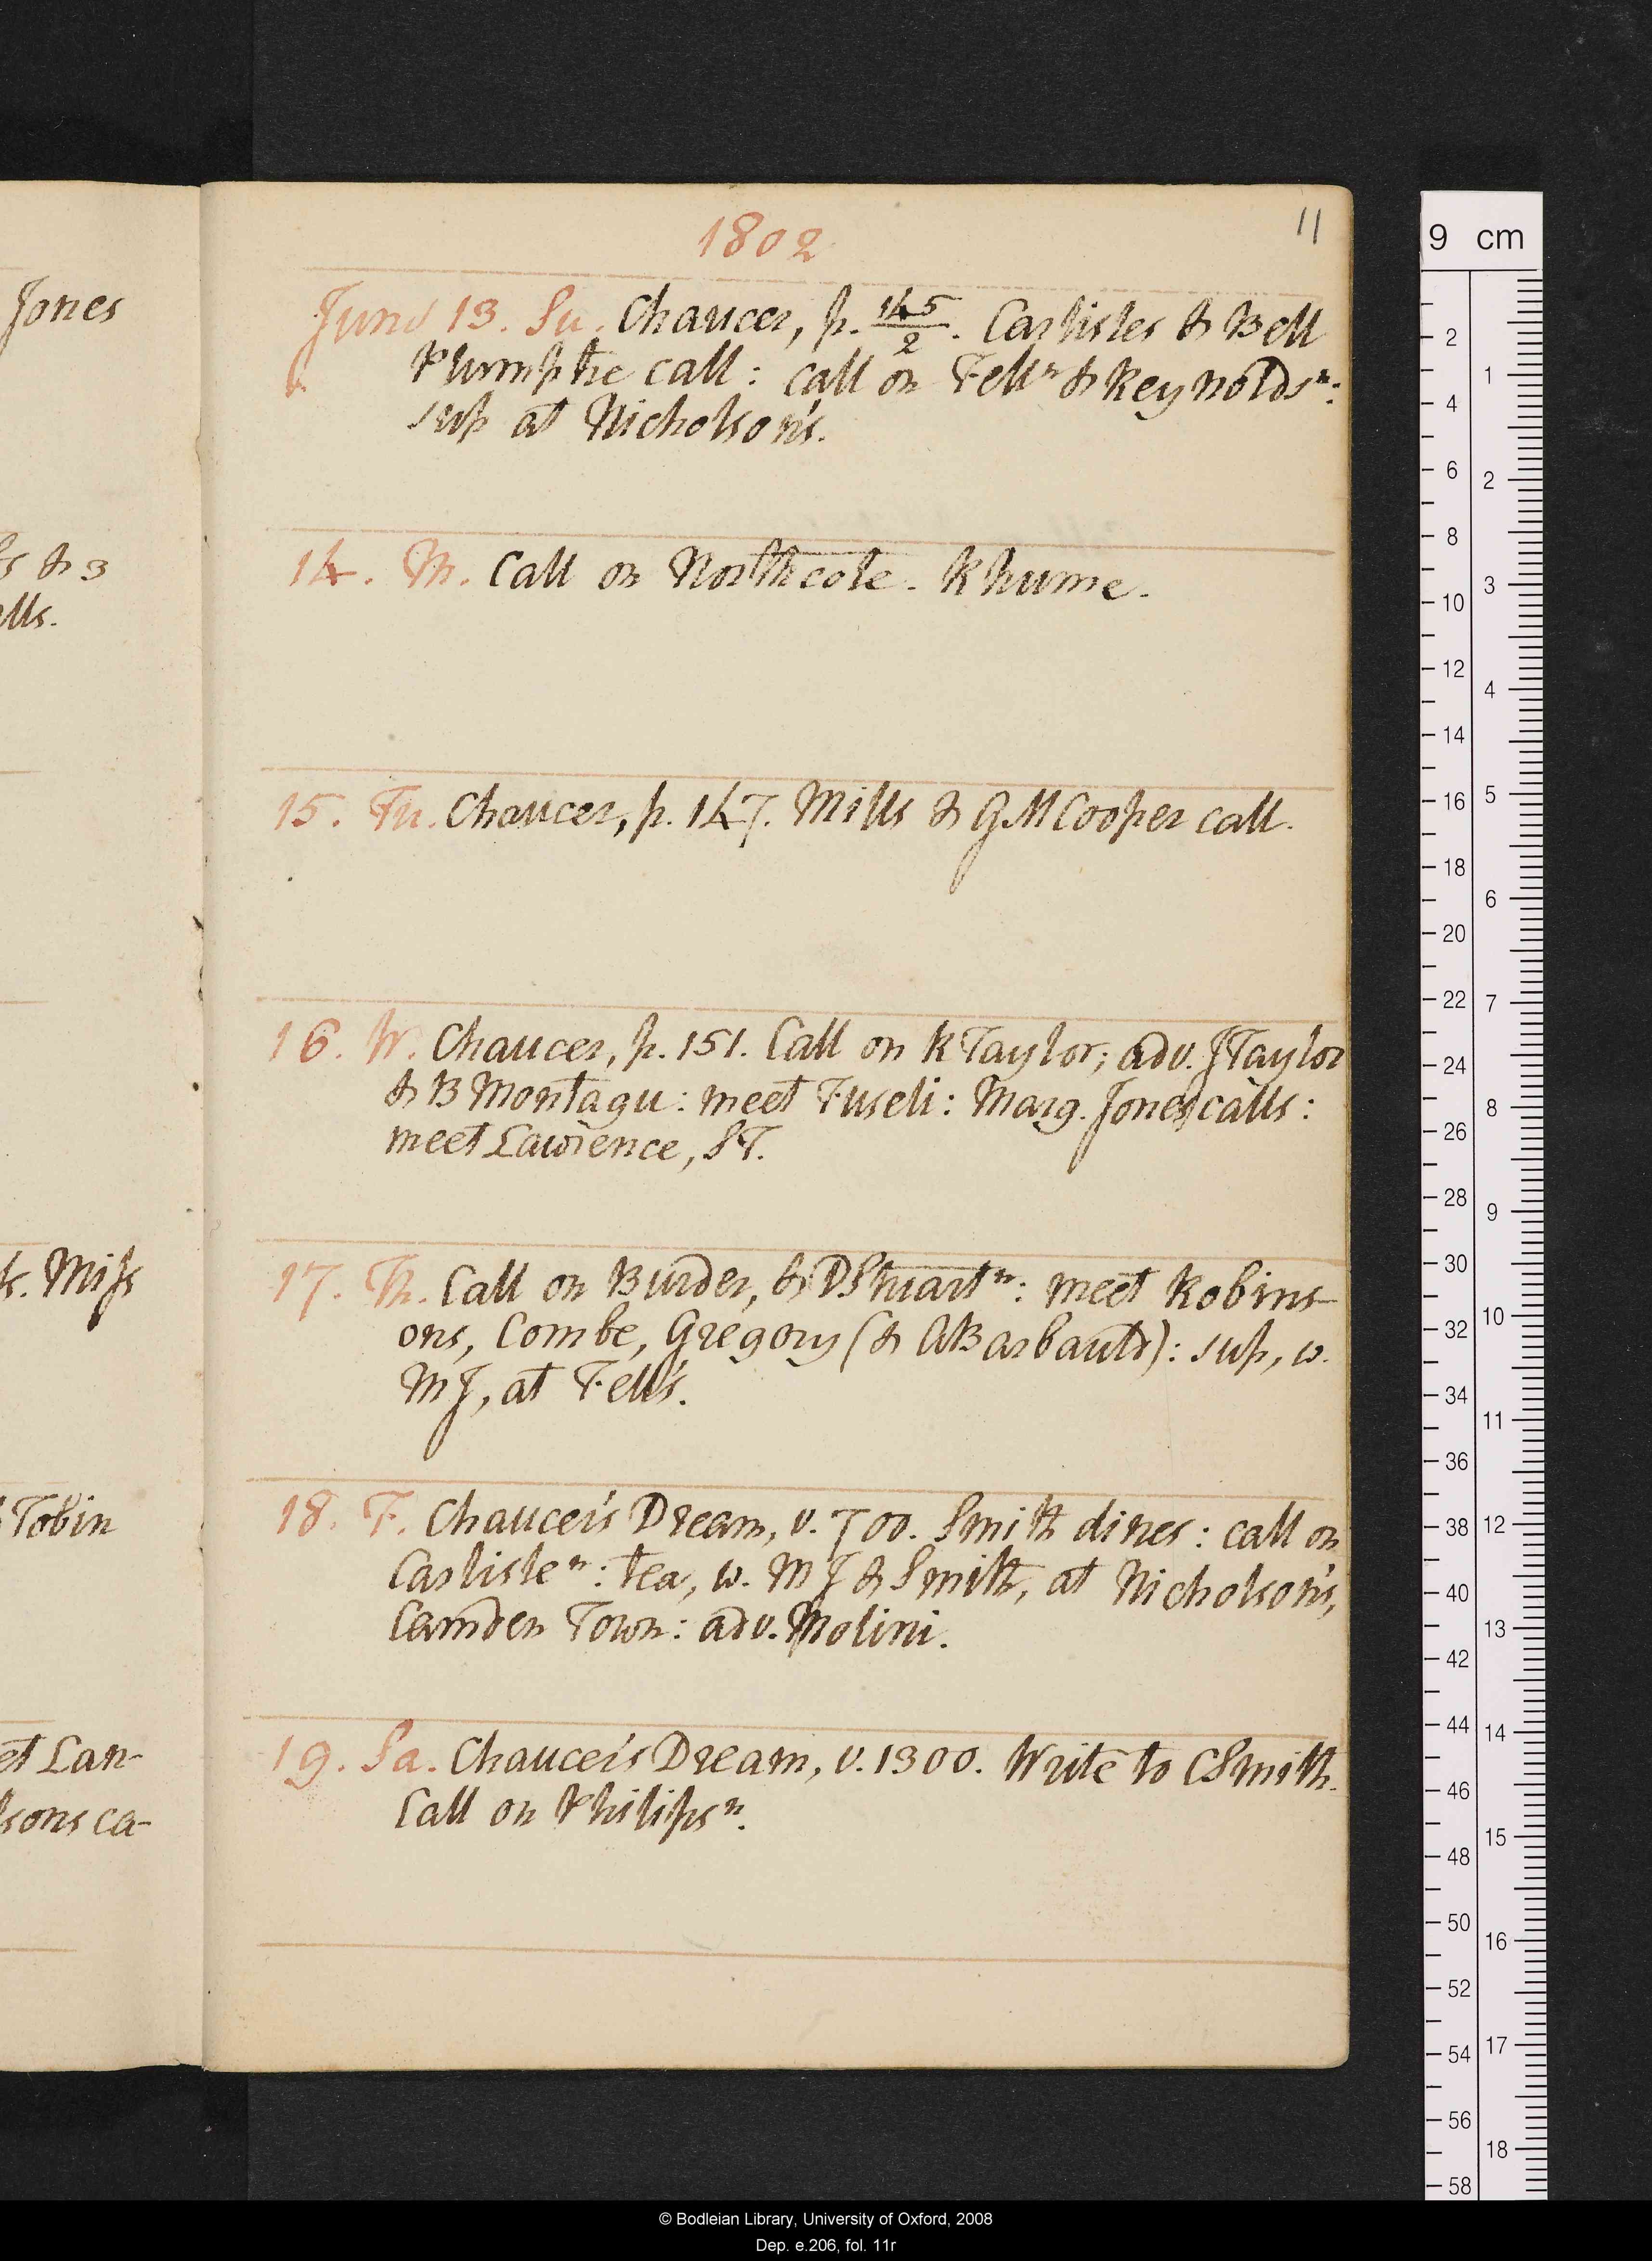 Jones
& 3
lls.
k. Miss
Tobin
et Lan-
lsons ca-
11
1802
June 13. Su. Chaucer, p. 145/2. Carlisles & Bell
Plumptre call: call on Fell n & Reynolds n:
sup at Nicholson's.
14. M. Call on Northcote. Rhume.
15. Tu. Chaucer, p. 147. Mills & GMCooper call.
16. W. Chaucer, p. 151. Call on R Taylor; adv. J Taylor
& B Montagu: meet Fuseli: Marg. Jones calls:
meet Lawrence, ST.
17. Th. Call on Burder, & D Stuart n: meet Robins-
ons, Combe, Gregory (& A Barbauld): sup, w.
M J, at Fell's.
18. F. Chaucer's Dream, v. 700. Smith dines: call on
Carlisle n: tea, w. M J & Smith, at Nicholson's,
Camden Town: adv. Molini.
19. Sa. Chaucer's Dream, v. 1300. Write to C Smith.
Call on Philips n.
9 cm
2
4
6
8
10
12
14
16
18
20
22
24
26
28
30
32
34
36
38
40
42
44
46
48
50
52
54
56
58
1
2
3
4
5
6
7
8
9
10
11
12
13
14
15
16
17
18
© Bodleian Library, University of Oxford, 2008
Dep. e.206, fol. 11r